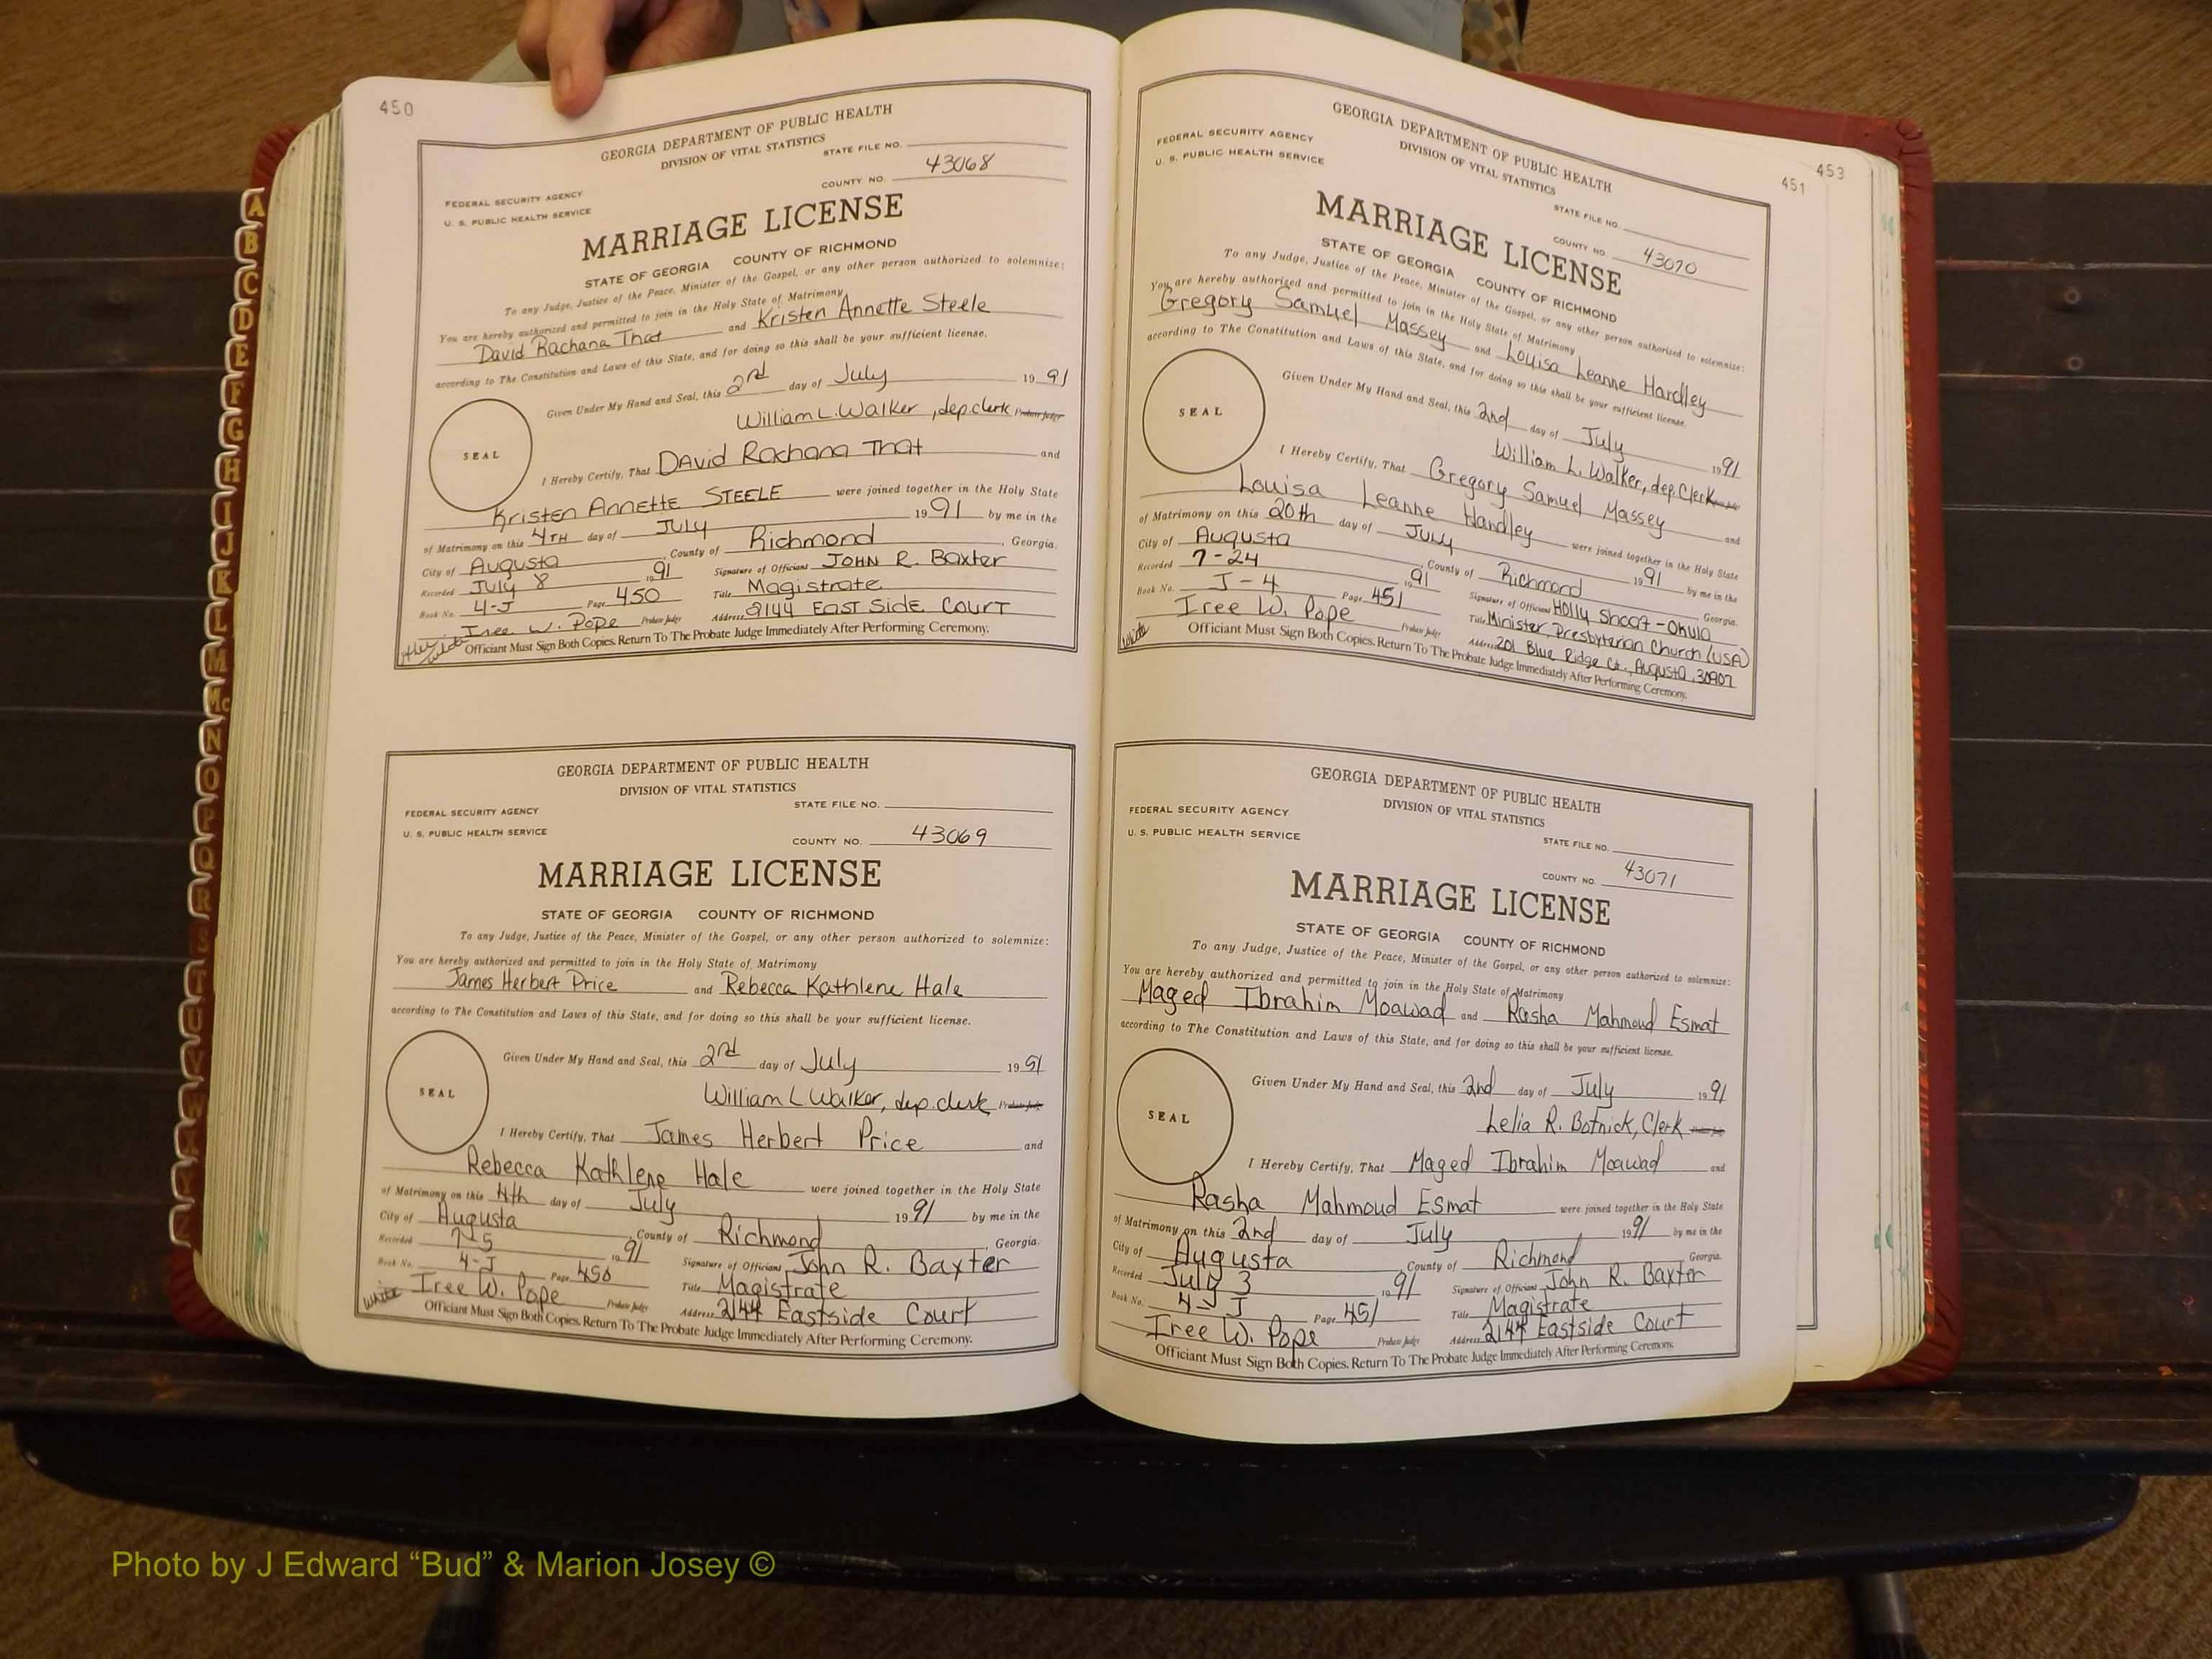 450
GEORGIA DEPARTMENT OF PUBLIC HEALTH
DIVISION OF VITAL STATISTICS
STATE FILE NO.
FEDERAL SECURITY AGENCY
U. S. PUBLIC HEALTH SERVICE
COUNTY NO. 43068
MARRIAGE LICENSE
STATE OF GEORGIA COUNTY OF RICHMOND
To any Judge, Justice of the Peace, Minister of the Gospel, or any other person authorized to solemnize:
You are hereby authorized and permitted to join in the Holy State of Matrimony
David Rachana That and Kristen Annette Steele
according to The Constitution and Laws of this State, and for doing so this shall be your sufficient license.
Given Under My Hand and Seal, this 2nd day of July 19 91
William L. Walker, dep. clerk Probate Judge
SEAL
I Hereby Certify, That David Rachana That and
Kristen Annette STEELE were joined together in the Holy State
of Matrimony on this 4TH day of July 19 91 by me in the
City of Augusta, County of Richmond, Georgia.
Recorded July 8 19 91 Signature of Officiant JOHN R. Baxter
Book No. 4-J Page 450 Title Magistrate
Iree W. Pope Probate Judge Address 2144 EAST Side Court
Officiant Must Sign Both Copies. Return To The Probate Judge Immediately After Performing Ceremony.
GEORGIA DEPARTMENT OF PUBLIC HEALTH
DIVISION OF VITAL STATISTICS
STATE FILE NO.
FEDERAL SECURITY AGENCY
U. S. PUBLIC HEALTH SERVICE
COUNTY NO. 43069
MARRIAGE LICENSE
STATE OF GEORGIA COUNTY OF RICHMOND
To any Judge, Justice of the Peace, Minister of the Gospel, or any other person authorized to solemnize:
You are hereby authorized and permitted to join in the Holy State of Matrimony
James Herbert Price and Rebecca Kathlene Hale
according to The Constitution and Laws of this State, and for doing so this shall be your sufficient license.
Given Under My Hand and Seal, this 2nd day of July 19 91
William L. Walker, dep. clerk Probate Judge
SEAL
I Hereby Certify, That James Herbert Price and
Rebecca Kathlene Hale were joined together in the Holy State
of Matrimony on this 4th day of July 19 91 by me in the
City of Augusta, County of Richmond, Georgia.
Recorded 7-5 19 91 Signature of Officiant John R. Baxter
Book No. 4-J Page 450 Title Magistrate
white Iree W. Pope Probate Judge Address 2144 Eastside Court
Officiant Must Sign Both Copies. Return To The Probate Judge Immediately After Performing Ceremony.
453
451
GEORGIA DEPARTMENT OF PUBLIC HEALTH
DIVISION OF VITAL STATISTICS
FEDERAL SECURITY AGENCY
U. S. PUBLIC HEALTH SERVICE
STATE FILE NO.
COUNTY NO. 43070
MARRIAGE LICENSE
STATE OF GEORGIA COUNTY OF RICHMOND
To any Judge, Justice of the Peace, Minister of the Gospel, or any other person authorized to solemnize:
You are hereby authorized and permitted to join in the Holy State of Matrimony
Gregory Samuel Massey and Louisa Leanne Hardley
according to The Constitution and Laws of this State, and for doing so this shall be your sufficient license.
Given Under My Hand and Seal, this 2nd day of July 19 91
William L. Walker, dep. Clerk
SEAL
I Hereby Certify, That Gregory Samuel Massey and
Louisa Leanne Handley were joined together in the Holy State
of Matrimony on this 20th day of July 19 91 by me in the
City of Augusta, County of Richmond Georgia.
Recorded 7-24 19 91 Signature of Officiant Holly Shoaf-Okula
Book No. J-4 Page 451 Title Minister, Presbyterian Church (USA)
white Iree W. Pope Probate Judge Address 201 Blue Ridge Ct., Augusta, 30907
Officiant Must Sign Both Copies. Return To The Probate Judge Immediately After Performing Ceremony.
GEORGIA DEPARTMENT OF PUBLIC HEALTH
DIVISION OF VITAL STATISTICS
FEDERAL SECURITY AGENCY
U. S. PUBLIC HEALTH SERVICE
STATE FILE NO.
COUNTY NO. 43071
MARRIAGE LICENSE
STATE OF GEORGIA COUNTY OF RICHMOND
To any Judge, Justice of the Peace, Minister of the Gospel, or any other person authorized to solemnize:
You are hereby authorized and permitted to join in the Holy State of Matrimony
Maged Ibrahim Moawad and Rasha Mahmoud Esmat
according to The Constitution and Laws of this State, and for doing so this shall be your sufficient license.
Given Under My Hand and Seal, this 2nd day of July 19 91
Lelia R. Botnick, Clerk
SEAL
I Hereby Certify, That Maged Ibrahim Moawad and
Rasha Mahmoud Esmat were joined together in the Holy State
of Matrimony on this 2nd day of July 19 91 by me in the
City of Augusta, County of Richmond Georgia.
Recorded July 3 19 91 Signature of Officiant John R. Baxter
Book No. 4-J Page 451 Title Magistrate
Iree W. Pope Probate Judge Address 2144 Eastside Court
Officiant Must Sign Both Copies. Return To The Probate Judge Immediately After Performing Ceremony.
A
B
C
D
E
F
G
H
I
J
K
L
M
Mc
N
O
P
Q
R
Photo by J Edward “Bud” & Marion Josey ©